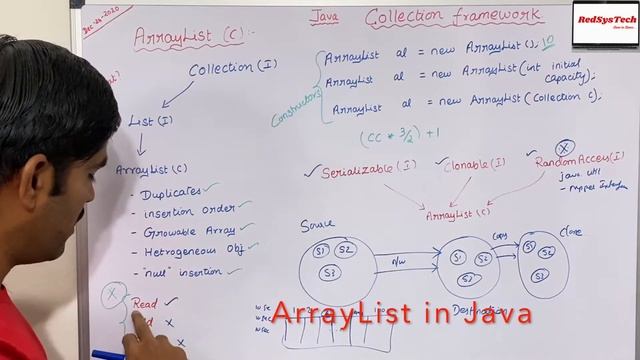 Dec-28-2020
Java Collection framework
RedSysTech
ArrayList (C) :-
Collection (I)
List (I)
ArrayList (C)
- Duplicates ✓
- insertion order ✓
- Growable Array ✓
- Hetrogeneous Obj ✓
- "null" insertion ✓
X
Read ✓
X
X
Constructors
ArrayList al = new ArrayList(); 10
ArrayList al = new ArrayList(int initial capacity);
ArrayList al = new ArrayList(Collection C);
(CC * 3/2) + 1
X
✓ Serializable (I) ✓ Clonable (I) ✓ RandomAccess (I)
java.util
ArrayList (C)
Source
S1 S2
S3
n/w
S1 S2
S3
Destination
Copy
Clone
S1
S2
S3
ArrayList in Java